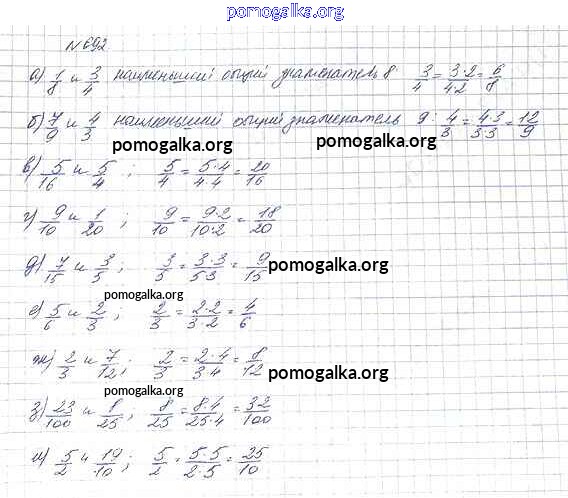 pomogalka.org
N 692
а) 1/8 и 3/4 наименьший общий знаменатель 8 3/4 = 3·2/4·2 = 6/8
pomogalka.org
б) 7/9 и 4/3 наименьший общий знаменатель 9: 4/3 = 4·3/3·3 = 12/9
pomogalka.org pomogalka.org
в) 5/16 и 5/4; 5/4 = 5·4/4·4 = 20/16
г) 9/10 и 1/20; 9/10 = 9·2/10·2 = 18/20
д) 7/15 и 3/5; 3/5 = 3·3/5·3 = 9/15 pomogalka.org
pomogalka.org
е) 5/6 и 2/3; 2/3 = 2·2/3·2 = 4/6
ж) 2/3 и 7/12; 2/3 = 2·4/3·4 = 8/12
pomogalka.org
pomogalka.org
з) 23/100 и 8/25; 8/25 = 8·4/25·4 = 32/100
и) 5/2 и 19/10; 5/2 = 5·5/2·5 = 25/10